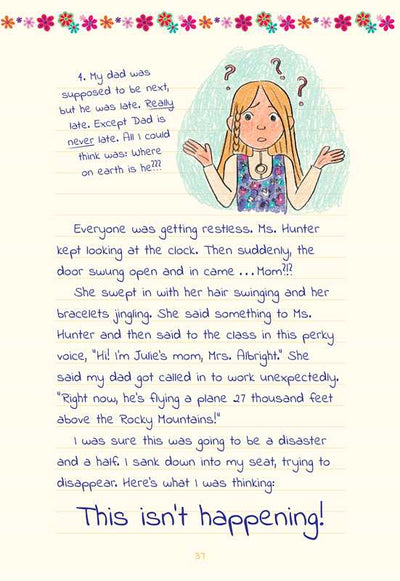 4. My dad was
supposed to be next,
but he was late. Really
late. Except Dad is
never late. All I could
think was: Where
on earth is he???
? ? ?
Everyone was getting restless. Ms. Hunter
kept looking at the clock. Then suddenly, the
door swung open and in came ...Mom?!?
She swept in with her hair swinging and her
bracelets jingling. She said something to Ms.
Hunter and then said to the class in this perky
voice, "Hi! I'm Julie's mom, Mrs. Albright." She
said my dad got called in to work unexpectedly.
"Right now, he's flying a plane 27 thousand feet
above the Rocky Mountains!"
I was sure this was going to be a disaster
and a half. I sank down into my seat, trying to
disappear. Here's what I was thinking:
This isn't happening!
37